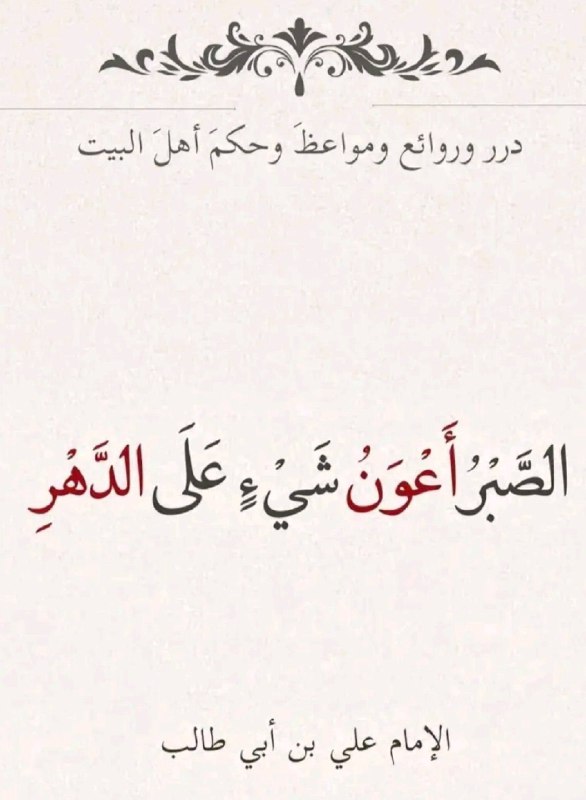 درر وروائع ومواعظَ وحكمَ أهلَ البيت
الصَّبْرُ أَعْوَنُ شَيْءٍ عَلَى الدَّهْرِ
الإمام علي بن أبي طالب